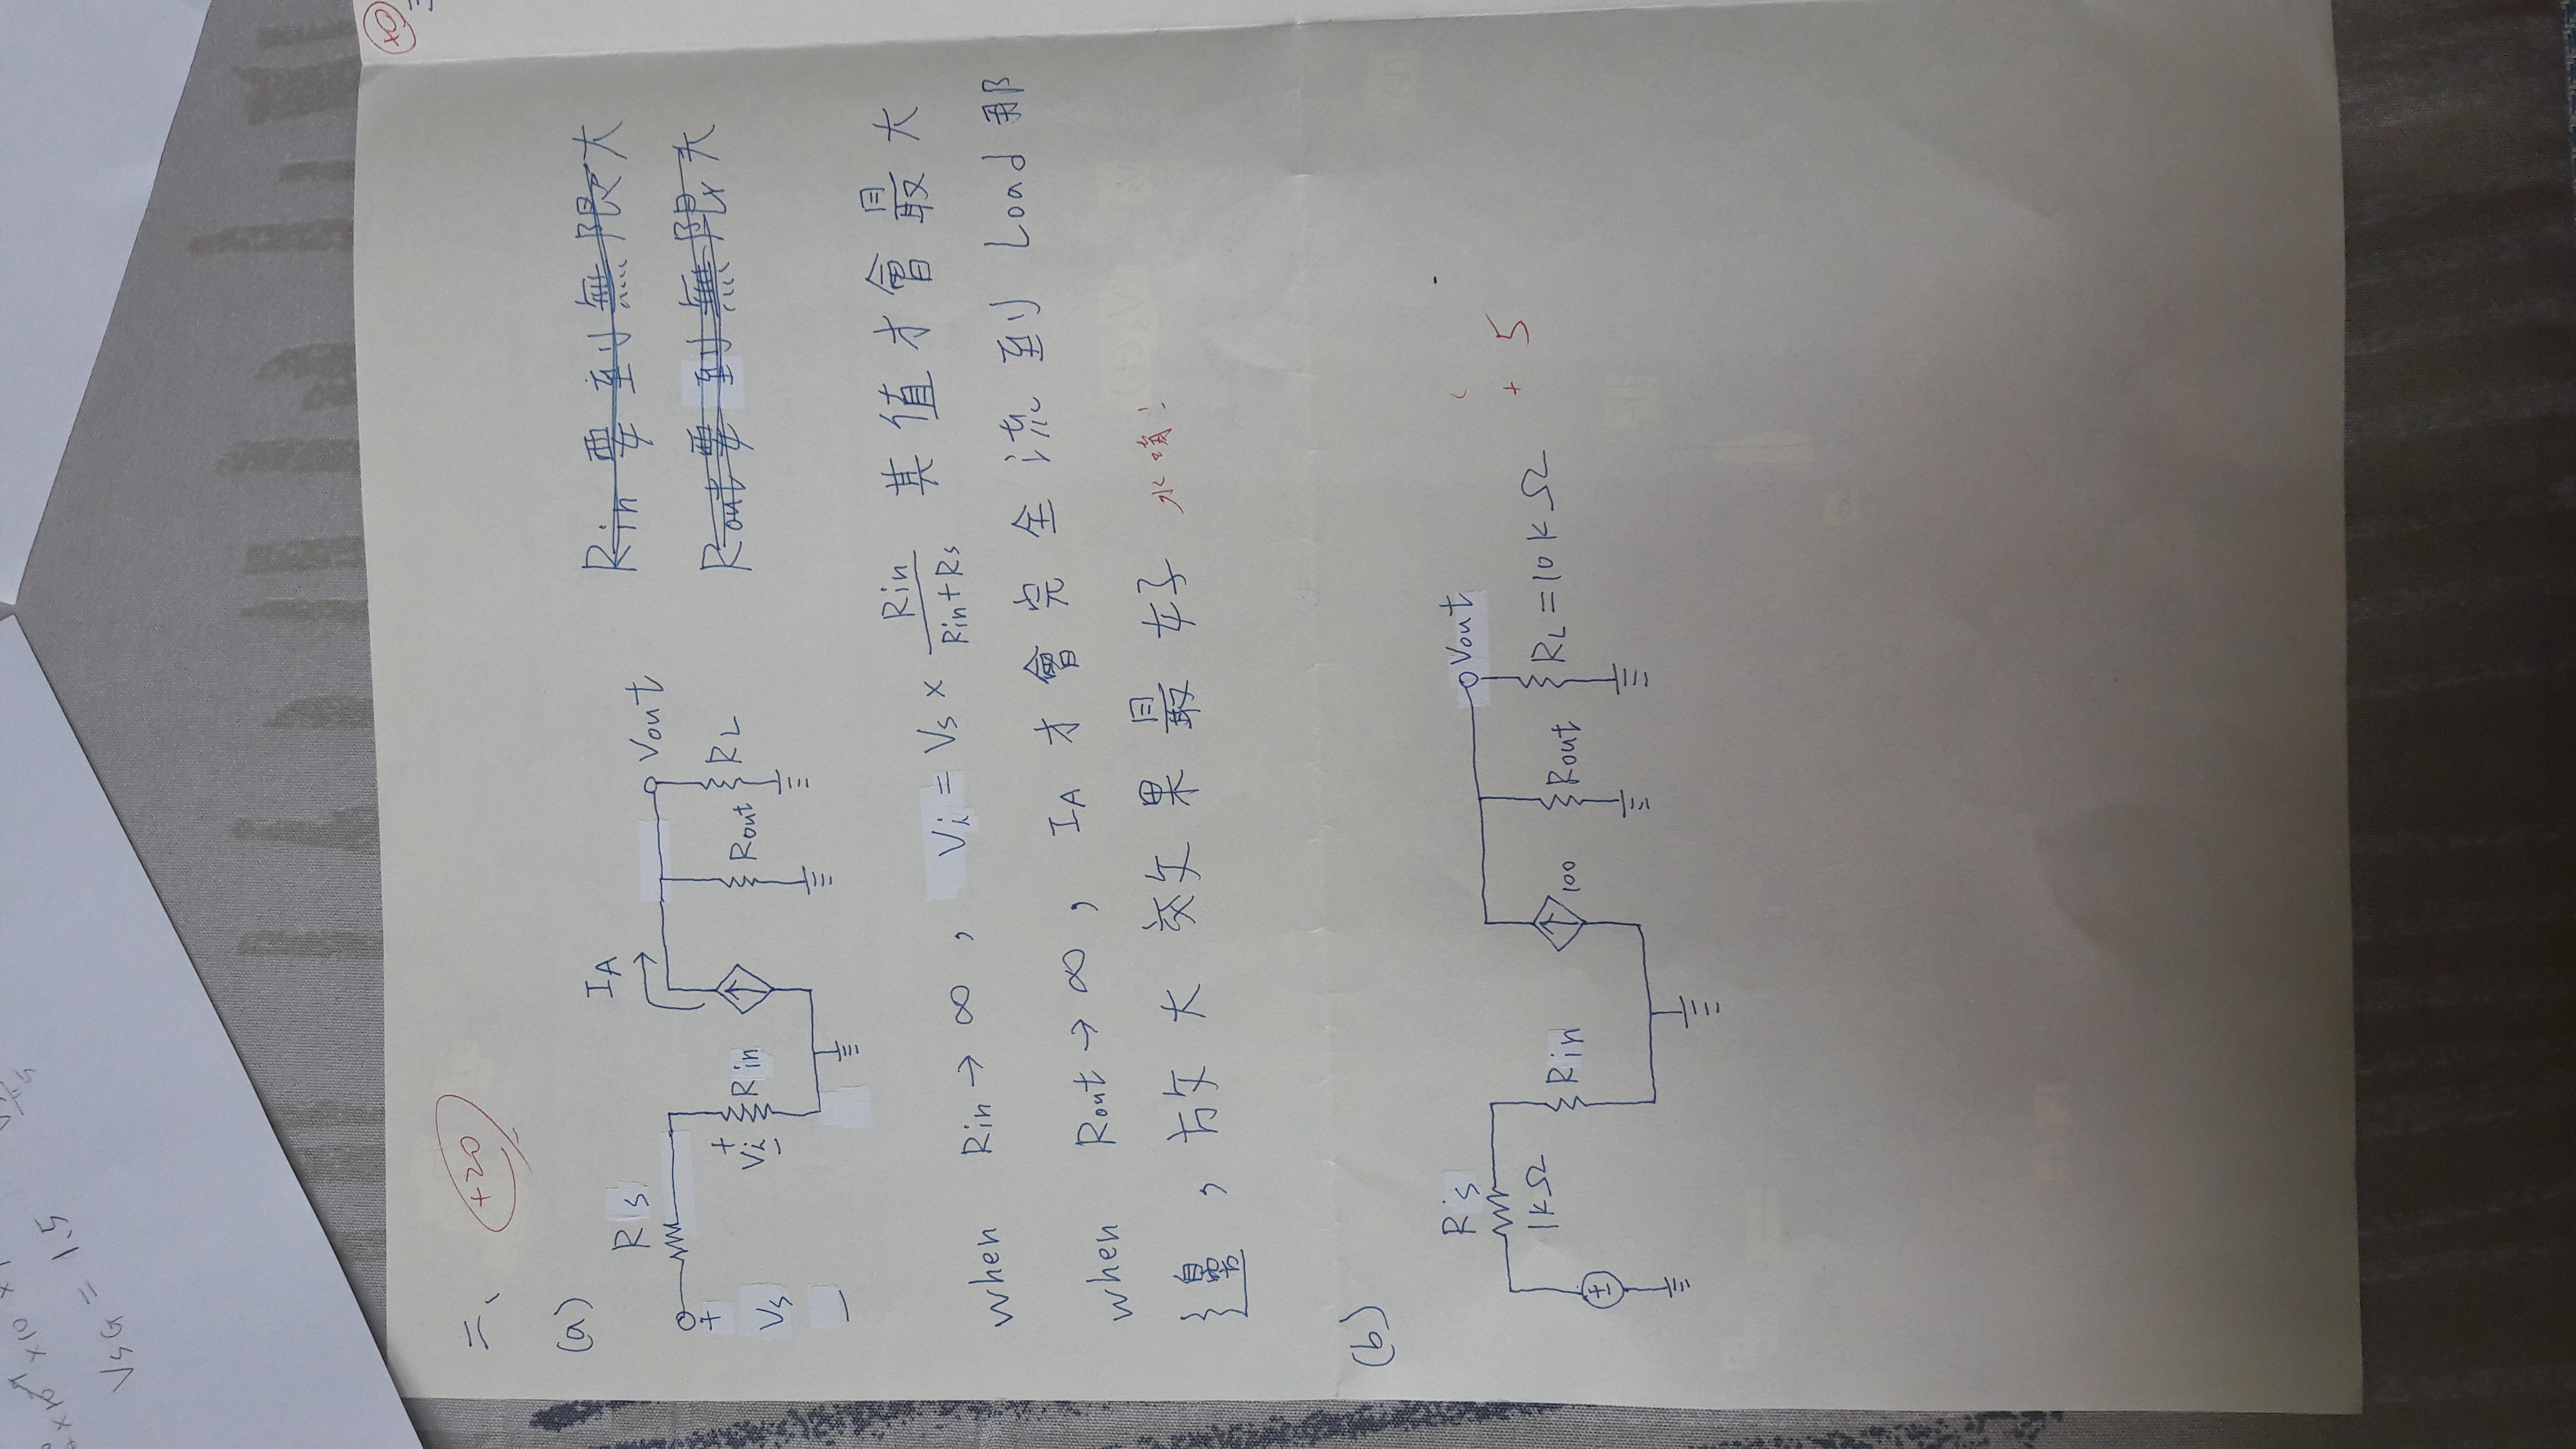 VSG = 1.5
+0
二、 +20
(a)
IA
Rs
Vout
+
Vs
−
+
Vi
−
Rin
Rout
RL
Rin 要到無限大
Rout 要到無限大
when Rin → ∞ , Vi = Vs × Rin / Rin+Rs 其值才會最大
when Rout → ∞ , IA 才會完全流到 Load 那
邊 , 放大效果最好
(b)
Rs
1kΩ
Rin
100
Rout
Vout
RL = 10kΩ
+ 5